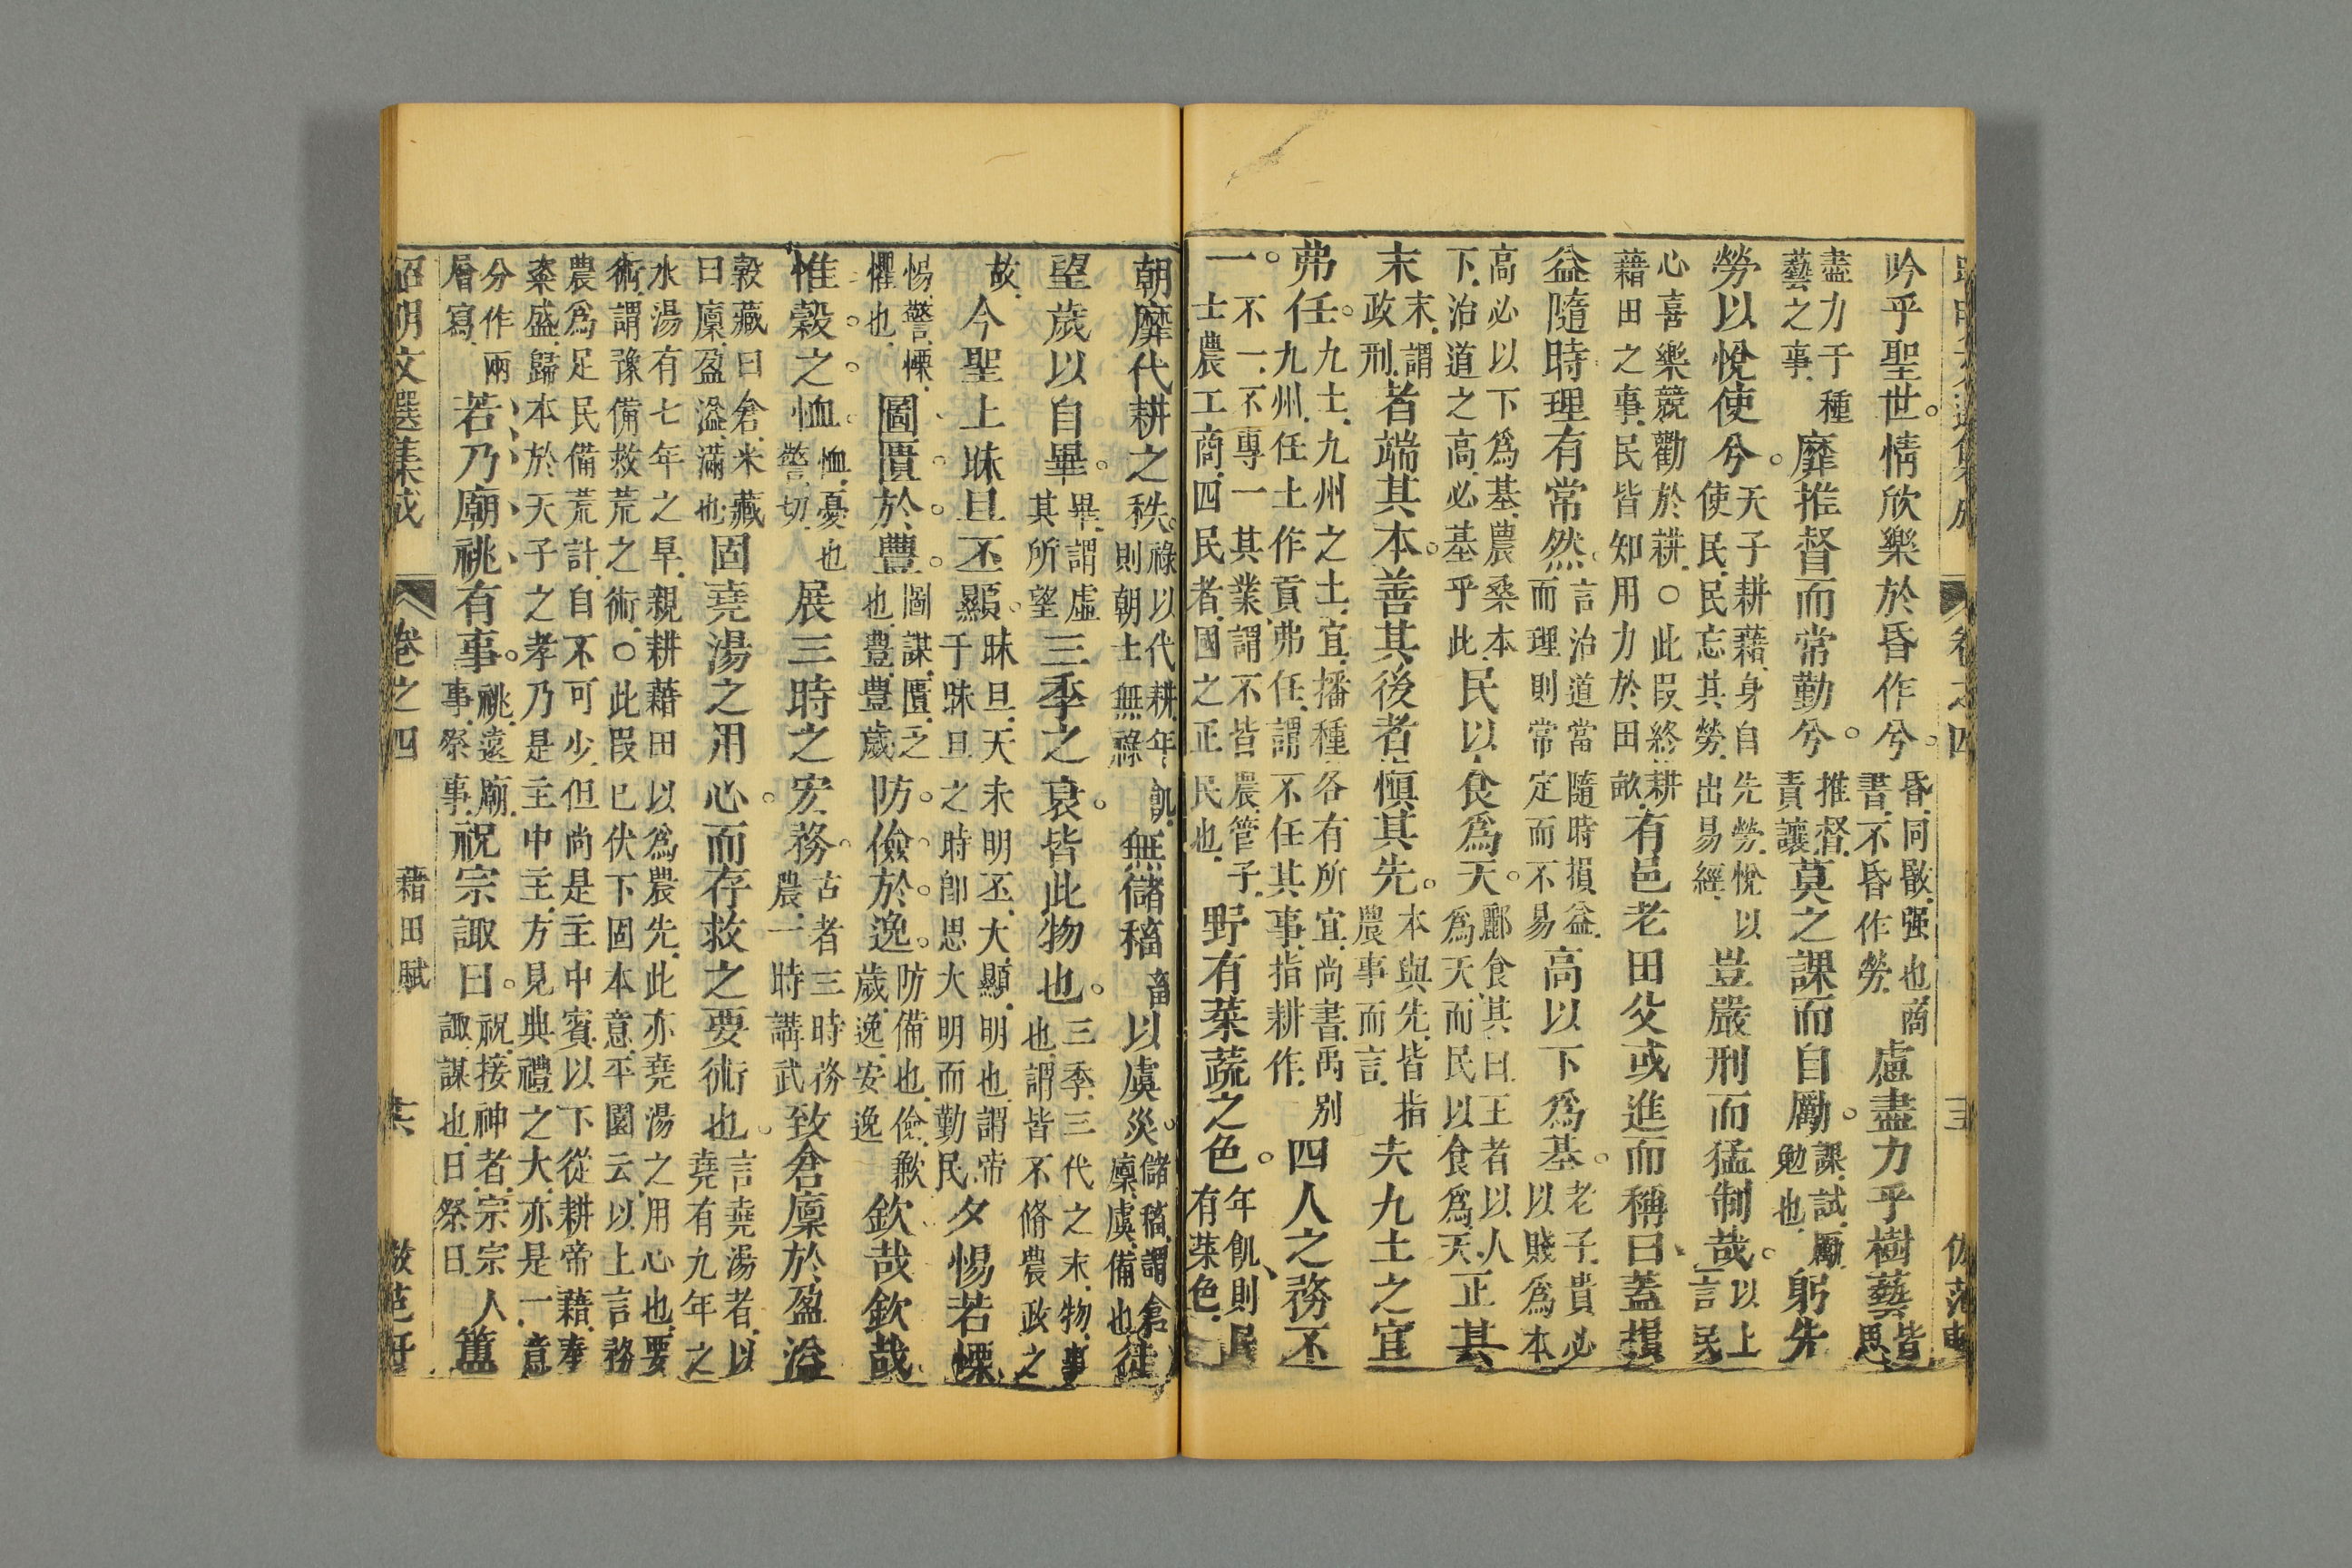 卷之四
吟乎聖世。情欣樂於昏作兮。
昏同敯强也商
書不昏作勞
慮盡力乎樹藝
皆
思
盡力于種
藝之事
靡推督而常勤兮。
推督
責讓
莫之課而自勵。
課試勵
勉也
躬先
勞以悅使兮。
天子耕藉身自先勞悅以
使民民忘其勞出易經
豈嚴刑而猛制哉。
以上
言民
心喜樂競勸於耕○此叚終耕
藉田之事民皆知用力於田畝
有邑老田父或進而稱曰蓋損
益隨時理有常然。
言治道當隨時損益
而理則常定而不易
高以下爲基。
老子貴必
以賤爲本
高必以下爲基農桑本
下治道之高必基乎此
民以食爲天。
酈食其曰王者以人
爲天而民以食爲天
正其
末
末謂
政刑
者端其本。善其後者愼其先。
本與先皆指
農事而言
夫九土之宜
弗任。
九土九州之土宜播種各有所宜尚書禹別
九州任土作貢弗任謂不任其事指耕作
四人之務不
一。
不一不專一其業謂不皆農管子
士農工商四民者國之正民也
野有菜蔬之色。
年飢則民
有菜色
朝靡代耕之秩。
祿以代耕年飢
則朝士無祿
無儲稸
畜
以虞災。
儲稸謂倉
廩虞備也
徒
望歲以自畢。
畢謂虛
其所望
三季之衰。皆此物也。
三季三代之末物事
也謂皆不脩農政之
故
今聖上昧旦丕顯。
昧旦天未明丕大顯明也謂帝
于昧旦之時卽思大明而勤民
夕惕若慄
惕警慄
懼也
圖匱於豐。
圖謀匱乏
也豐豐歲
防儉於逸。
防備也儉歉
歲逸安逸
欽哉欽哉
惟穀之恤。
恤憂也
警切
展三時之宏務。
古者三時務
農一時講武
致倉廩於盈溢
穀藏曰倉米藏
曰廩盈溢滿也
固堯湯之用心。而存救之要術也。
言堯湯者以
堯有九年之
水湯有七年之旱親耕藉田以爲農先此亦堯湯之用心也要
術謂豫備救荒之術○此叚已伏下固本意平園云以上言務
農爲足民備荒計自不可少但尚是主中賓以下從耕帝藉奉
粢盛歸本於天子之孝乃是主中主方見典禮之大亦是一意
分作兩
層寫
若乃廟祧有事。
祧遠廟
事祭事
祝宗諏日。
祝接神者宗宗人
諏謀也日祭日
簠
昭明文選集成 卷之四 藉田賦